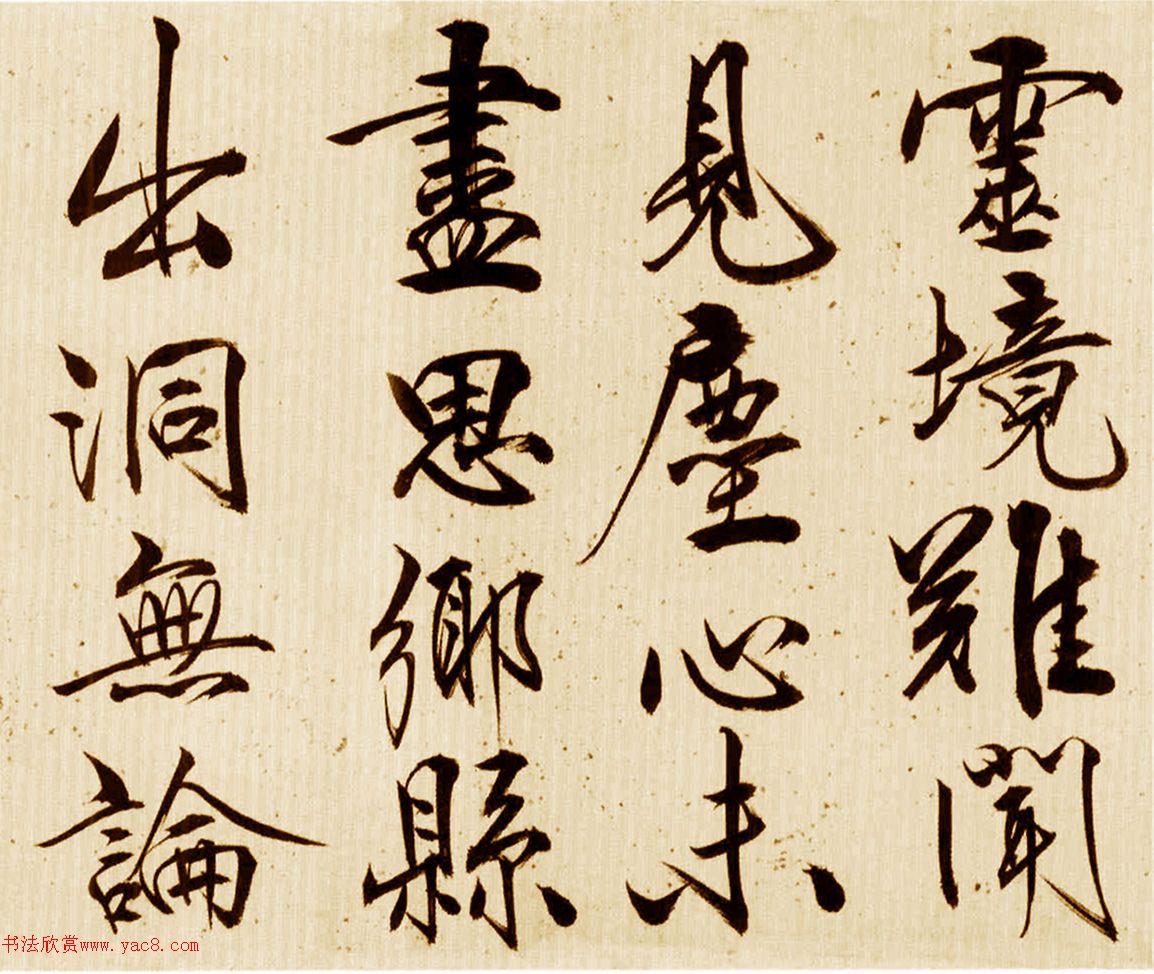 靈境難聞
見塵心未
盡思鄉縣
出洞無論
书法欣赏www.yac8.com